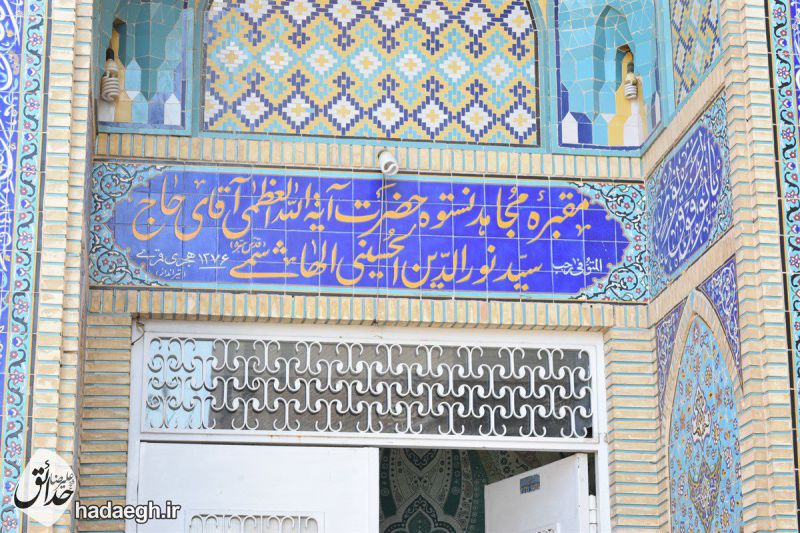 مقبرهٔ مجاهد نستوه حضرت آیة الله العظمی آقای حاج
سید نورالدین الحسینی الهاشمی
المتوفی رجب ۱۳۷۶ هجری قمری
حدائق
علیرضا
hadaegh.ir